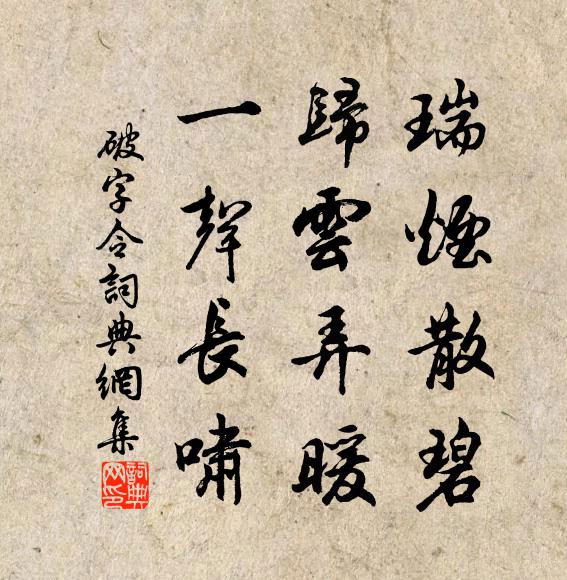 瑞煙散碧
歸雲弄暖
一聲長嘯
破字令詞典網集
詞典网印